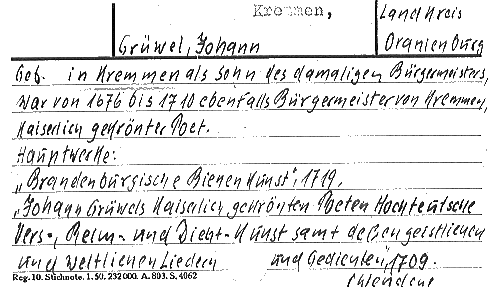 Kremmen,
Landkreis
Oranienburg
Grüwel, Johann
Geb. in Kremmen als Sohn des damaligen Bürgermeisters,
war von 1676 bis 1710 ebenfalls Bürgermeister von Kremmen,
Kaiserlich gekrönter Poet.
Hauptwerke:
„Brandenburgische Bienenkunst", 1719.
„Johann Grüwels Kaiserlich gekrönten Poeten Hochteutsche
Vers-, Reim- und Dicht-Kunst samt deßen geistlichen
und weltlichen Liedern und Gedichten", 1709.
Reg. 10. Stichnote. 1. 50. 232 000. A. 803. S. 4062